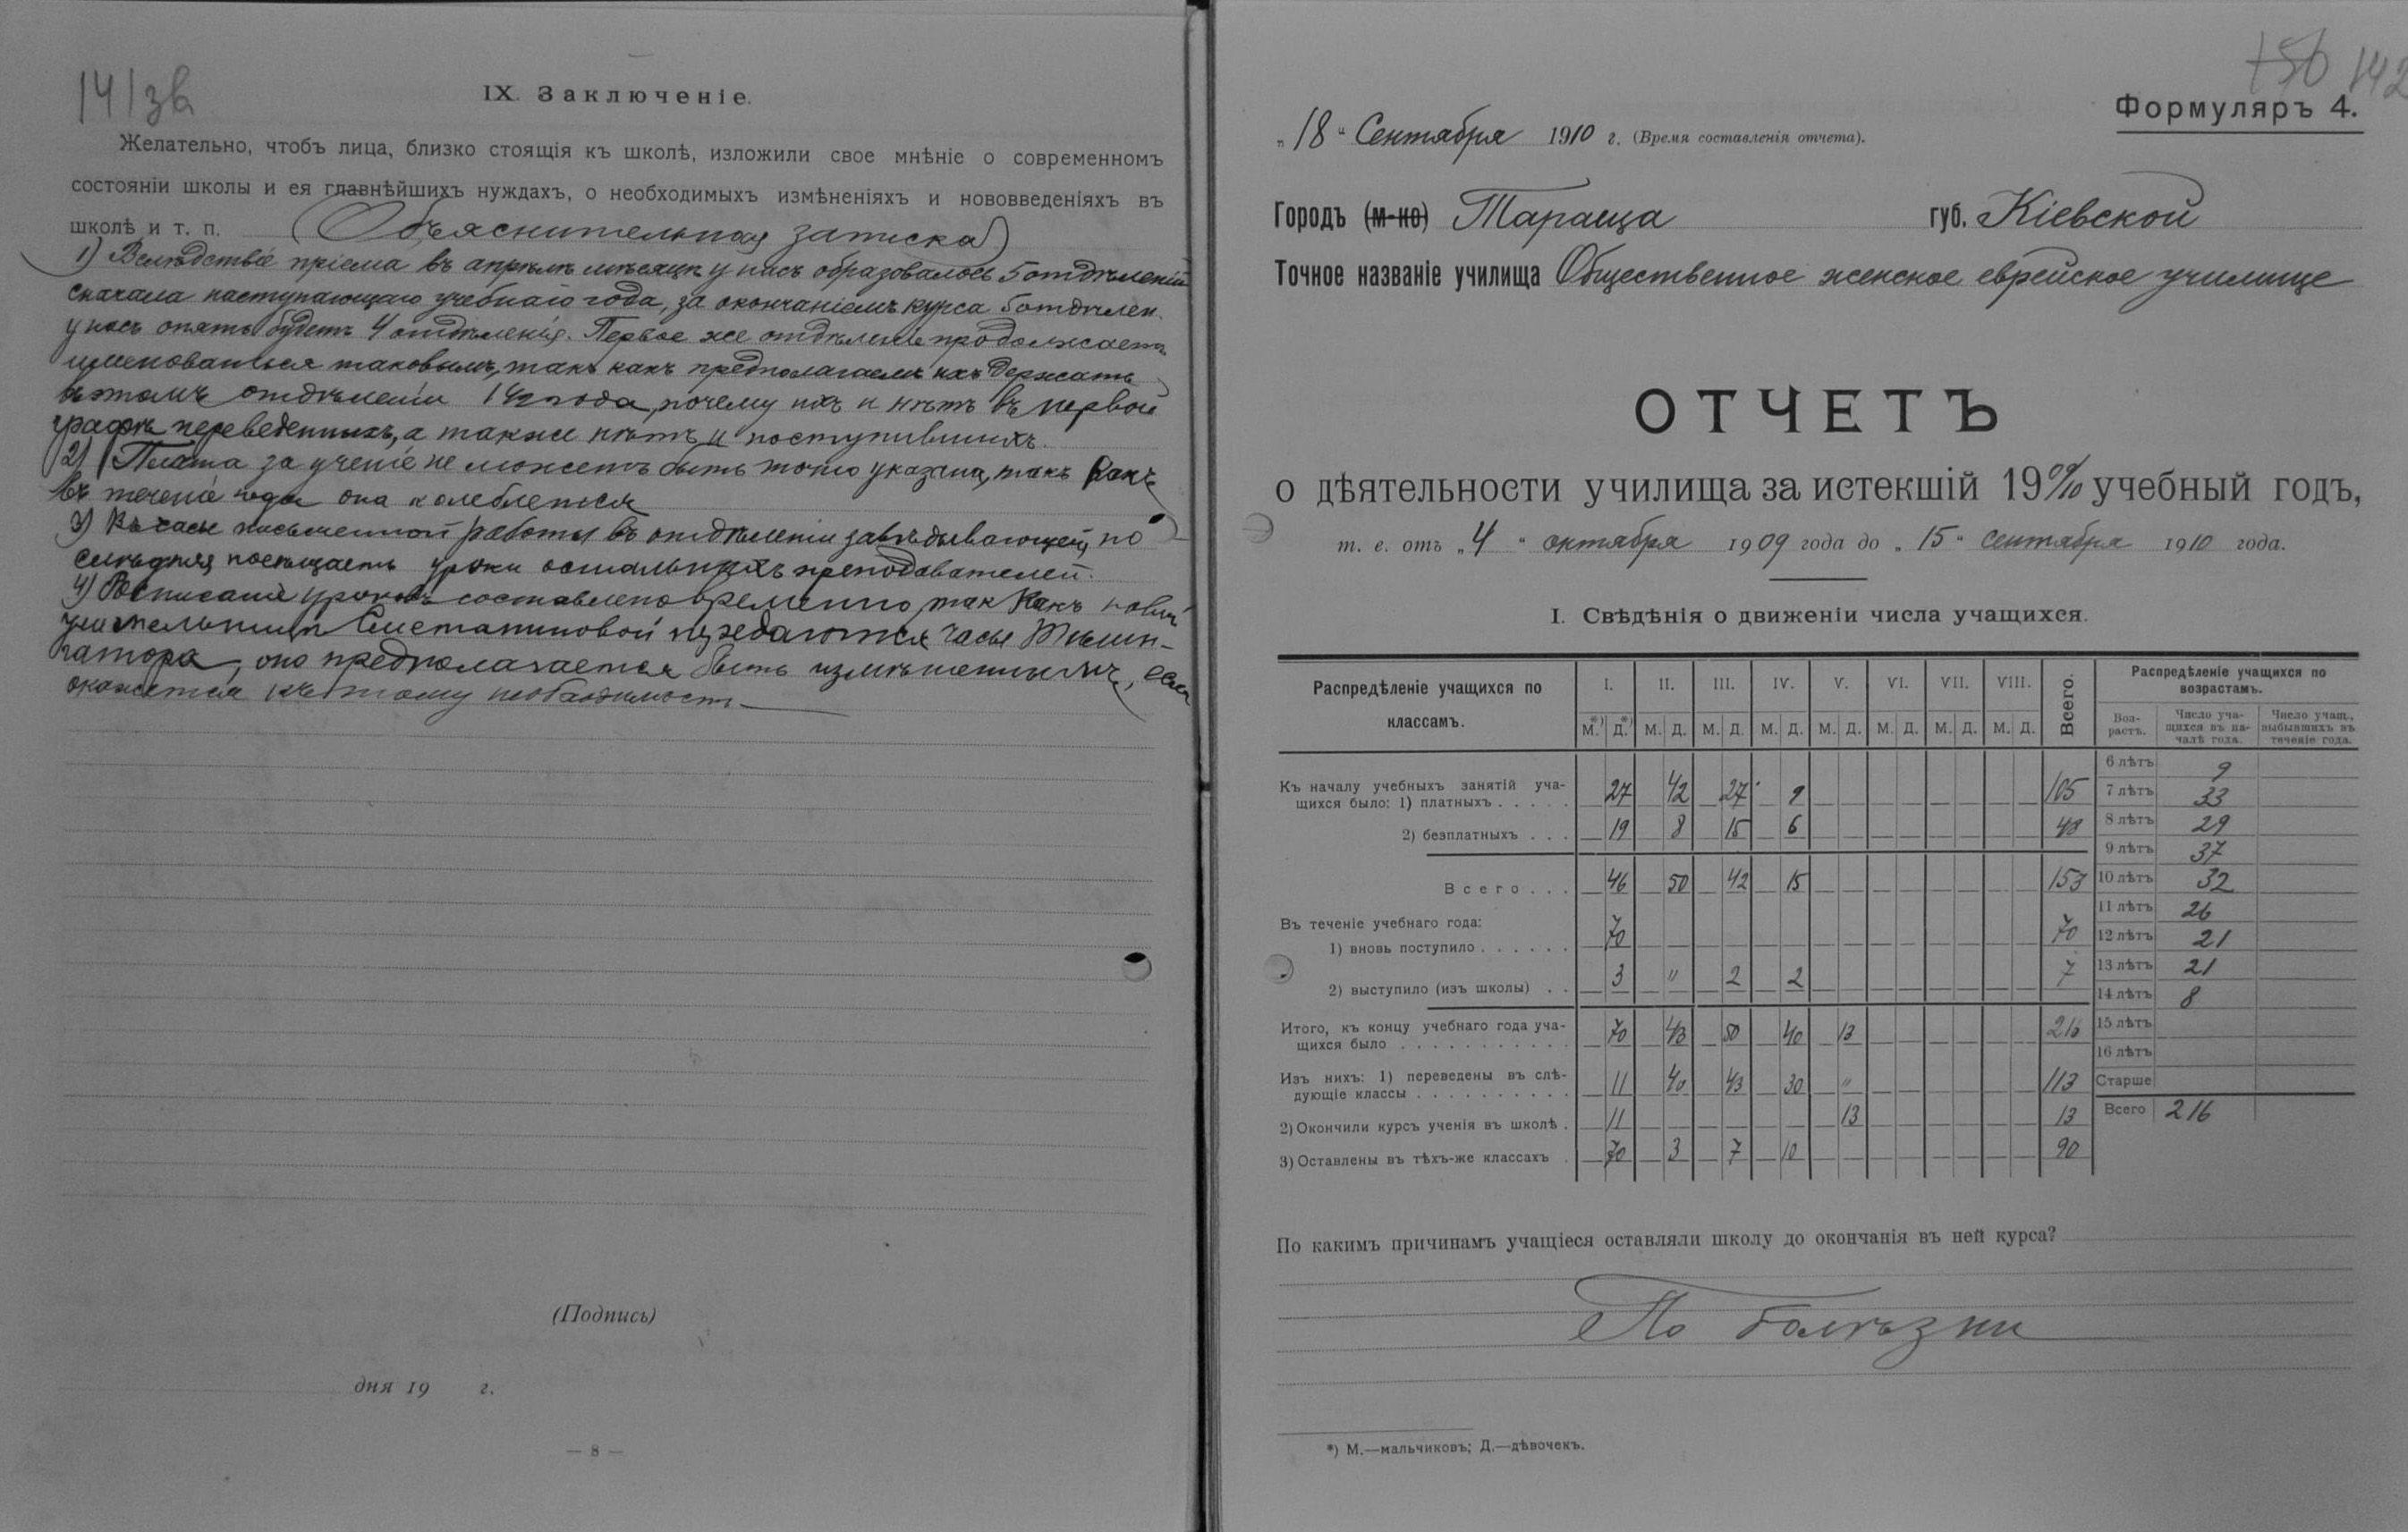 141 зв
IX. Заключеніе.
Желательно, чтобъ лица, близко стоящія къ школѣ, изложили свое мнѣніе о современномъ
состояніи школы и ея главнѣйшихъ нуждахъ, о необходимыхъ измѣненіяхъ и нововведеніяхъ въ
школѣ и т. п. (Объяснительная записка)
1) Вслѣдствіе пріема въ апрѣлѣ мѣсяцѣ у насъ образовалось 5 отдѣленій
сначала наступающаго учебнаго года, за окончаніемъ курса 5 отдѣлен.
у насъ опять будетъ 4 отделенія. Первое же отдѣленіе продолжаетъ
именоваться таковымъ, такъ какъ предполагаемъ ихъ держать
въ этомъ отдѣленіи 1½ года, почему ихъ и нѣтъ въ первой
графѣ переведенныхъ, а также нѣтъ и поступившихъ.
2) Плата за ученіе не можетъ быть точно указана, такъ какъ
въ теченіе года она колеблется
3) Въ часы письменной работы въ отдѣленіи завѣдывающей, по
слѣдняя посѣщаетъ уроки остальныхъ преподавателей.
4) Росписаніе уроковъ составлено временно, так какъ новой
учительницѣ Сметанниковой нуждаются часы
оно предполагается быть измѣненнымъ, если
окажется къ тому необходимость
(Подпись)
дня 19 г.
— 8 —
150 142
Формуляръ 4.
„18“ Сентября 1910 г. (Время составленія отчета).
Городъ (м-ко) Тараща губ. Кіевской
Точное названіе училища Общественное женское еврейское училище
ОТЧЕТЪ
о дѣятельности училища за истекшій 1909/10 учебный годъ,
т. е. отъ „4“ октября 1909 года до „15“ сентября 1910 года.
I. Свѣдѣнія о движеніи числа учащихся.
Распредѣленіе учащихся по классамъ. I. II. III. IV. V. VI. VII. VIII. Всего.
М.*) Д.*) М. Д. М. Д. М. Д. М. Д. М. Д. М. Д. М. Д.
Къ началу учебныхъ занятій уча-
щихся было: 1) платныхъ . . . . . 27 42 27 9 105
2) безплатныхъ . . . 19 8 15 6 48
Всего . . . 46 50 42 15 153
Въ теченіе учебнаго года:
1) вновь поступило . . . . . . 70 70
2) выступило (изъ школы) . . 3 " 2 2 7
Итого, къ концу учебнаго года уча-
щихся было . . . . . . . . . . . 70 43 50 40 13 216
Изъ нихъ: 1) переведены въ слѣ-
дующіе классы . . . . . . . . . . 11 40 43 30 " 113
2) Окончили курсъ ученія въ школѣ . 11 13 13
3) Оставлены въ тѣхъ-же классахъ . 70 3 7 10 90
Распредѣленіе учащихся по
возрастамъ.
Воз-растъ. Число уча-щихся въ на-чалѣ года. Число учащ., выбывшихъ въ теченіе года.
6 лѣтъ 9
7 лѣтъ 33
8 лѣтъ 29
9 лѣтъ 37
10 лѣтъ 32
11 лѣтъ 26
12 лѣтъ 21
13 лѣтъ 21
14 лѣтъ 8
15 лѣтъ
16 лѣтъ
Старше
Всего 216
По какимъ причинамъ учащіеся оставляли школу до окончанія въ ней курса?
По болѣзни
*) М.—мальчиковъ; Д.—дѣвочекъ.